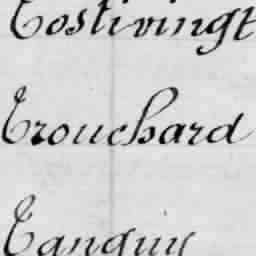 Tostivingt
Trouchard
Tanguy